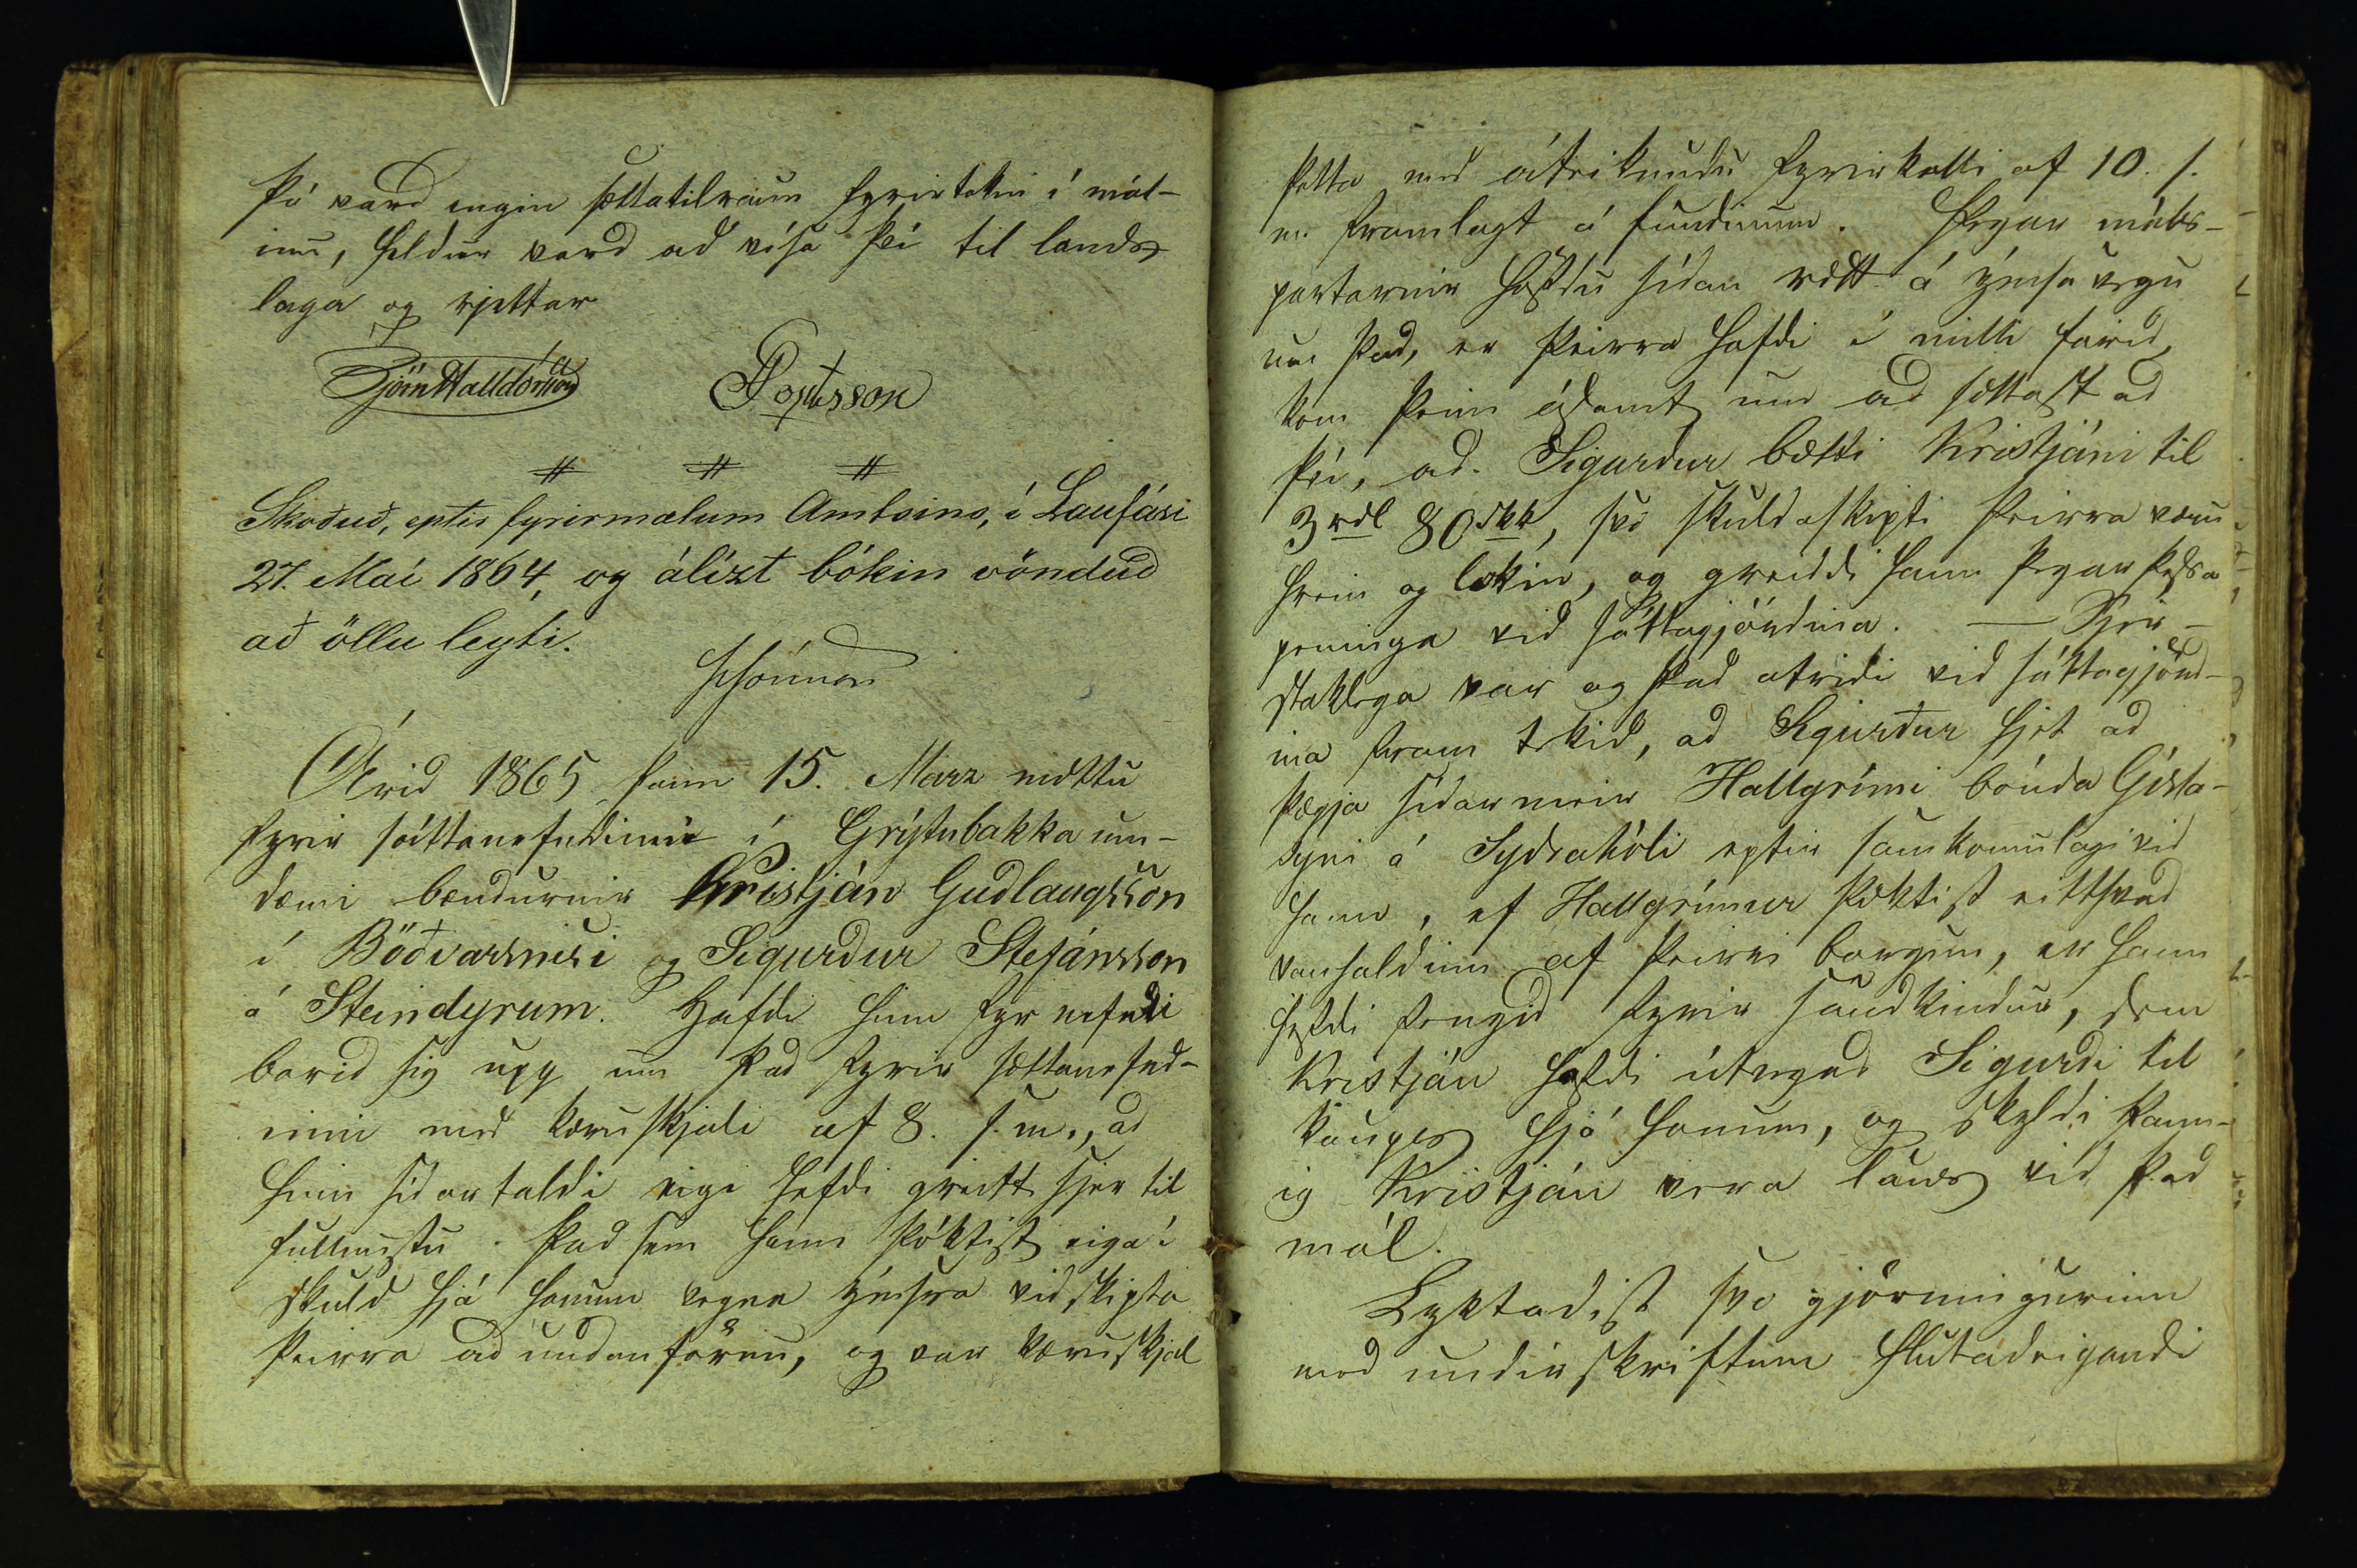 Þó varð engin sættatilraun fyrirtekin í mál-
inu, heldur varð að vísa því til lands
laga og rjettar
Björn Halldórsson
Skoðuð, eptir fyrirmælum Amtsins, í Laufási
27. Maí 1864, og álízt bókin vönduð
að öllu leyti.
Árið 1865 þann 15. Marz mættu
fyrir sáttanefndinni í Grýtubakka um-
dæmi bændurnir Kristján Guðlaugsson
í Böðvarsnesi og Sigurður Stefánsson
á Steindyrum. Hafði hinn fyr nefndi
borið sig upp um það fyrir sættanefnd-
inni með kæruskjali af 8. s. m., að
hinn síðartaldi eigi hefði greitt sjer til
fullnustu það sem hann þóktist eiga í
skuld hjá honum vegna ýmsra viðskipta
þeirra að undanförnu, og var kæruskjal
þetta með áteiknuðu fyrirkalli af 10. s.
m. framlagt á fundinum. Þegar máls-
partarnir höfðu síðan rætt á ýmsa vegu
um það, er þeirra hafði á milli farið,
kom þeim ásamt um að sættast að
því, að Sigurður bætti Kristjáni til
3 rdl 80 skk, svo skuldaskipti þeirra væru
hrein og lokin, og greiddi hann þegar þessa
peninga við sáttagjörðina. — Sjer-
staklega var og það atriði við sáttagjörð-
ina fram tekið, að Sigurður hjet að
þægja síðarmeir Hallgrími bónda Gísla-
syni á Syðrahóli eptir samkomulagi við
hann, ef Hallgrímur þættist eitthvað
vanhaldinn af þeirri borgun, er hann
hefði fengið fyrir sauðkindur, sem
Kristján hefði útvegað Sigurði til
kaups hjá honum, og skyldi þann-
ig Kristján vera laus við það
mál.
Lyktaðist svo gjörningurinn
með undirskriftum hlutaðeigandi